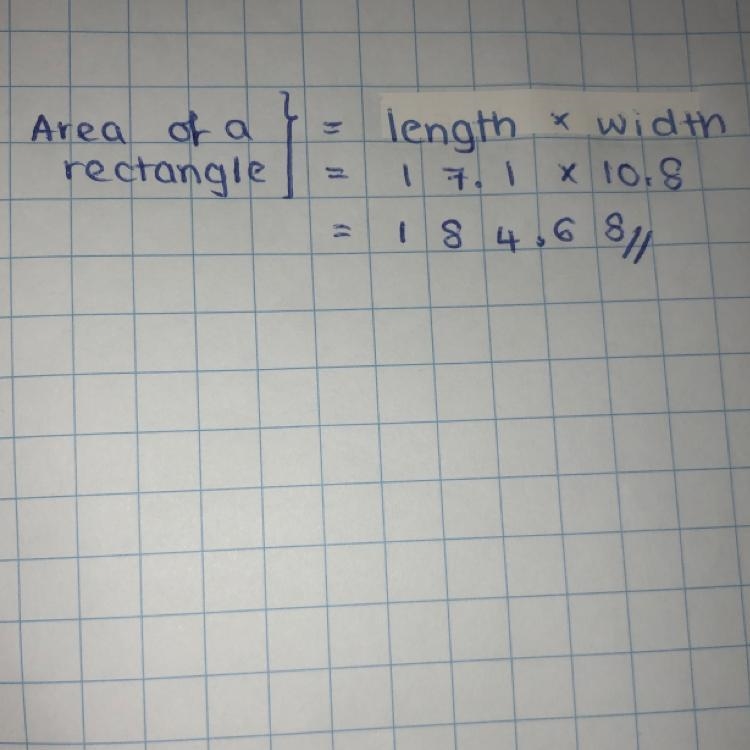 Area of a } = length × width
rectangle } = 17.1 × 10.8
= 184.68//